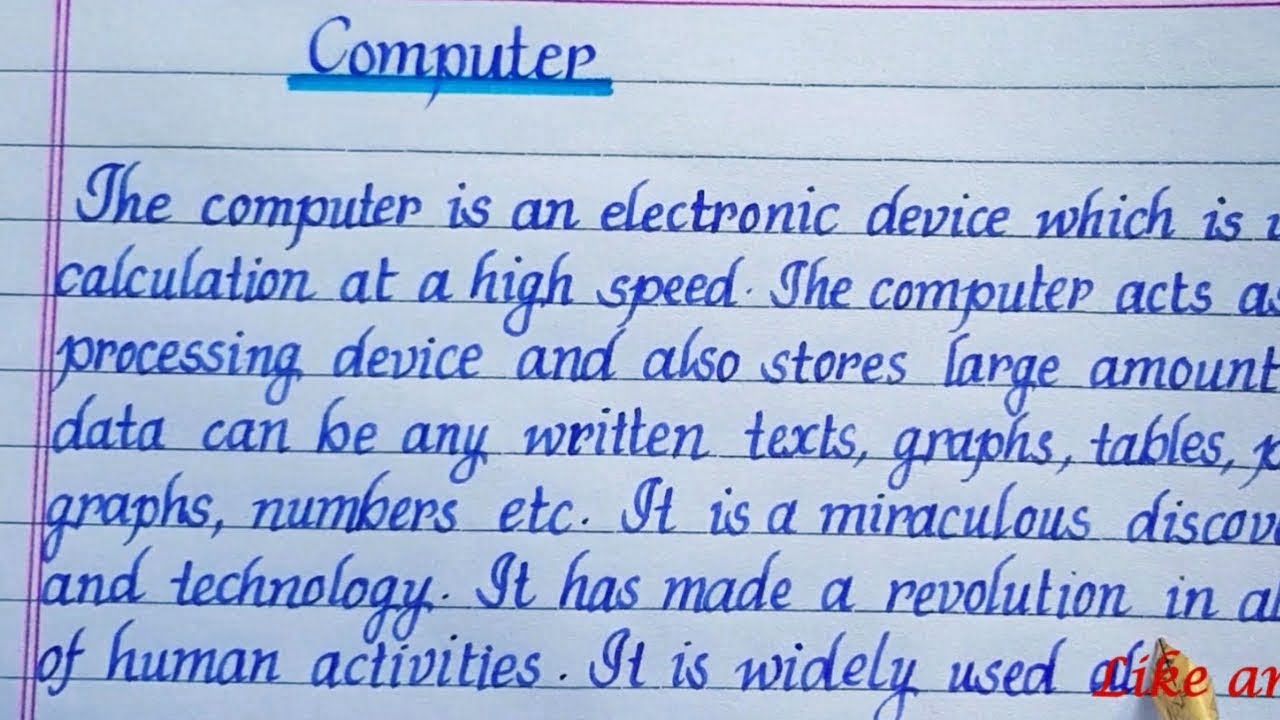 Computer
The computer is an electronic device which is
calculation at a high speed. The computer acts as
processing device and also stores large amount
data can be any written texts, graphs, tables,
graphs, numbers etc. It is a miraculous
and technology. It has made a revolution in
of human activities. It is widely used
Like